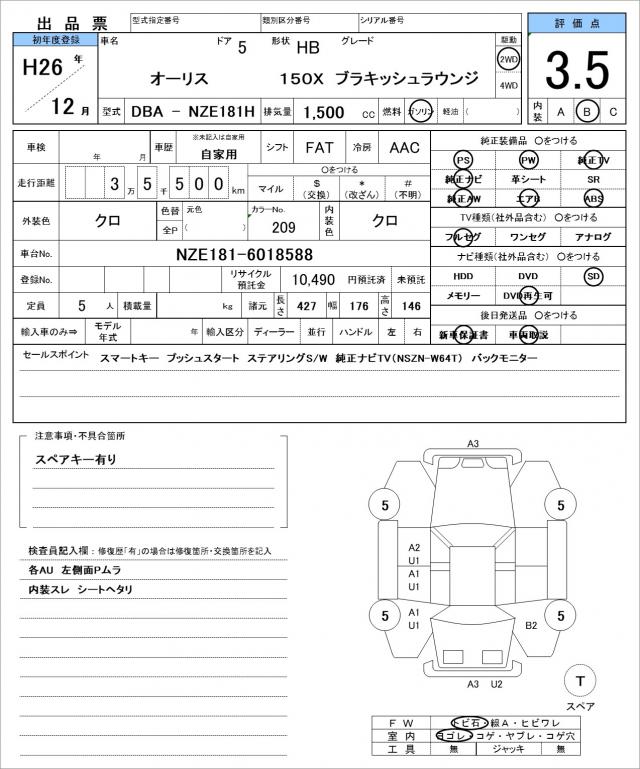 出品票 型式指定番号 類別区分番号 シリアル番号
評価点
初年度登録 車名 ドア 5 形状 HB グレード 駆動
H26 年 オーリス 150X ブラキッシュラウンジ 2WD 3.5
4WD
12 月 型式 DBA － NZE181H 排気量 1,500 cc 燃料 ガソリン・軽油 ( ) 内装 A B C
車検 年 月 車歴 ※未記入は自家用 自家用 シフト FAT 冷房 AAC
走行距離 3 万 5 千 5 0 0 km ○をつける マイル $ (交換) * (改ざん) # (不明)
外装色 クロ 色替 全P 元色 ( ) カラーNo. 209 内装色 クロ
車台No. NZE181-6018588
登録No. リサイクル預託金 10,490 円預託済 未預託
定員 5 人 積載量 kg 諸元 長さ 427 幅 176 高さ 146
輸入車のみ⇒ モデル年式 年 輸入区分 ディーラー 並行 ハンドル 左 右
純正装備品 ○をつける
PS PW 純正TV
純正ナビ 革シート SR
純正AW エアB ABS
TV種類(社外品含む) ○をつける
フルセグ ワンセグ アナログ
ナビ種類(社外品含む) ○をつける
HDD DVD SD
メモリー DVD再生可
後日発送品 ○をつける
新車保証書 車両取説
セールスポイント スマートキー プッシュスタート ステアリングS/W 純正ナビTV(NSZN-W64T) バックモニター
注意事項・不具合箇所
スペアキー有り
検査員記入欄：修復歴「有」の場合は修復箇所・交換箇所を記入
各AU 左側面Pムラ
内装スレ シートヘタリ
A3
5 5
A2
U1
A1
U1
A1
U1
5 5
B2
A3 U2
T
スペア
FW トビ石・線A・ヒビワレ
室内 ヨゴレ・コゲ・ヤブレ・コゲ穴
工具 無 ジャッキ 無